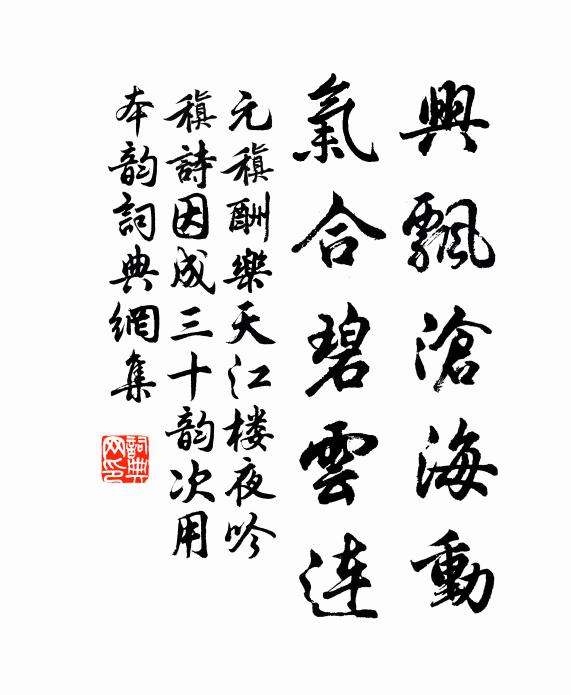 興飄滄海動
氣合碧雲連
元稹酬樂天江楼夜吟
稹詩因成三十韵次用
本韵詞典網集
詞典
网印